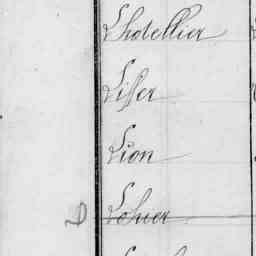 Lhotellier
Lisser
Lion
D Lehuer